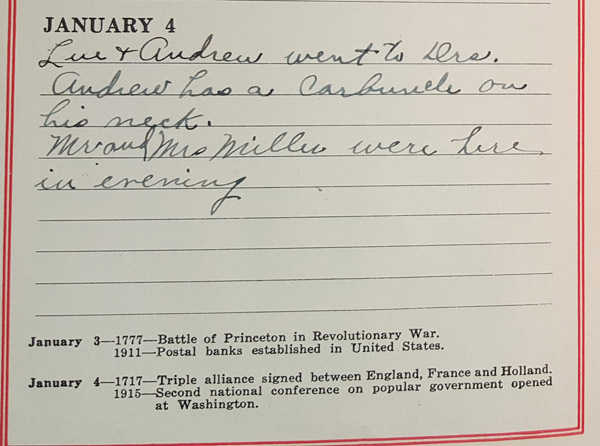 JANUARY 4
Lue & Andrew went to Drs.
Andrew has a Carbuncle on
his neck.
Mr and Mrs Miller were here
in evening
January 3—1777—Battle of Princeton in Revolutionary War.
1911—Postal banks established in United States.
January 4—1717—Triple alliance signed between England, France and Holland.
1915—Second national conference on popular government opened
at Washington.